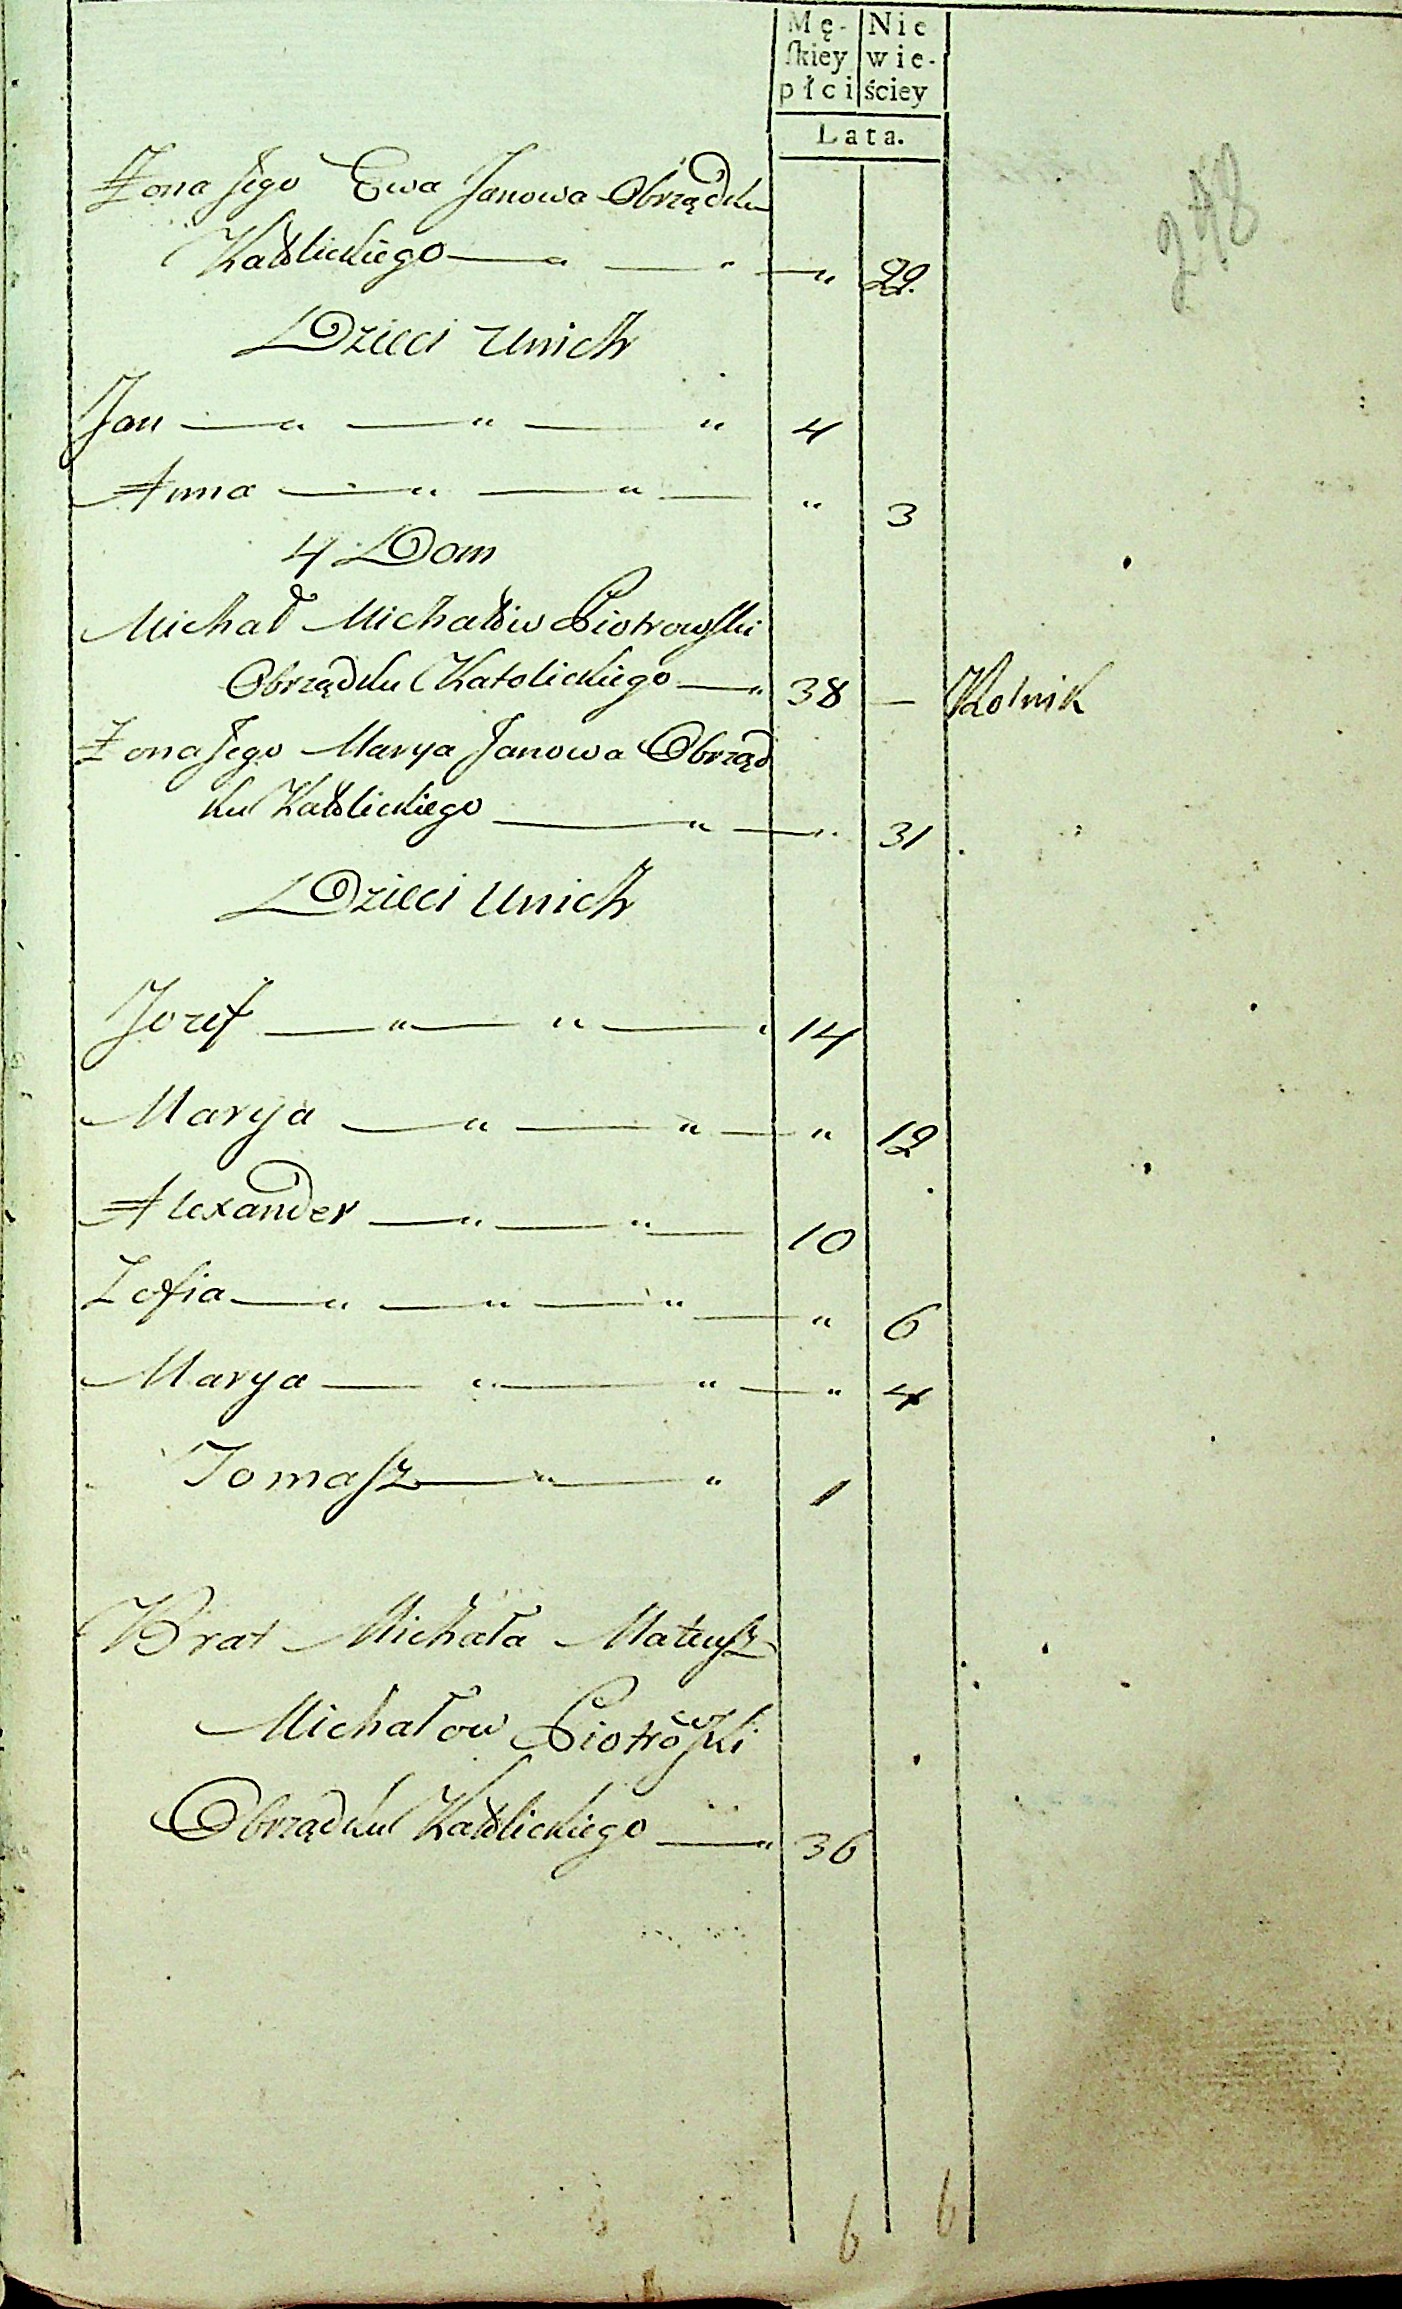 Mę- Nie
skiey wie-
płci ściey
Lata.
278
Żona Jego Ewa Janowa Obrządku
Katolickiego — " — " — " 22.
Dzieci Unich
Jan — " — " — " 4
Anna — " — " — " 3
4 Dom
Michał Michałów Piotrowski
Obrządku Katolickiego — " 38 — Rolnik
Żona Jego Marya Janowa Obrząd
ku Katolickiego — " — " 31
Dzieci Unich
Jozef — " — " — " 14
Marya — " — " — " 12
Alexander — " — " — 10
Zofia — " — " — " — " 6
Marya — " — " — " 4
Tomasz — " — " 1
Brat Michała Mateusz
Michałow Piotrowski
Obrządku Katolickiego — " 36
6 6